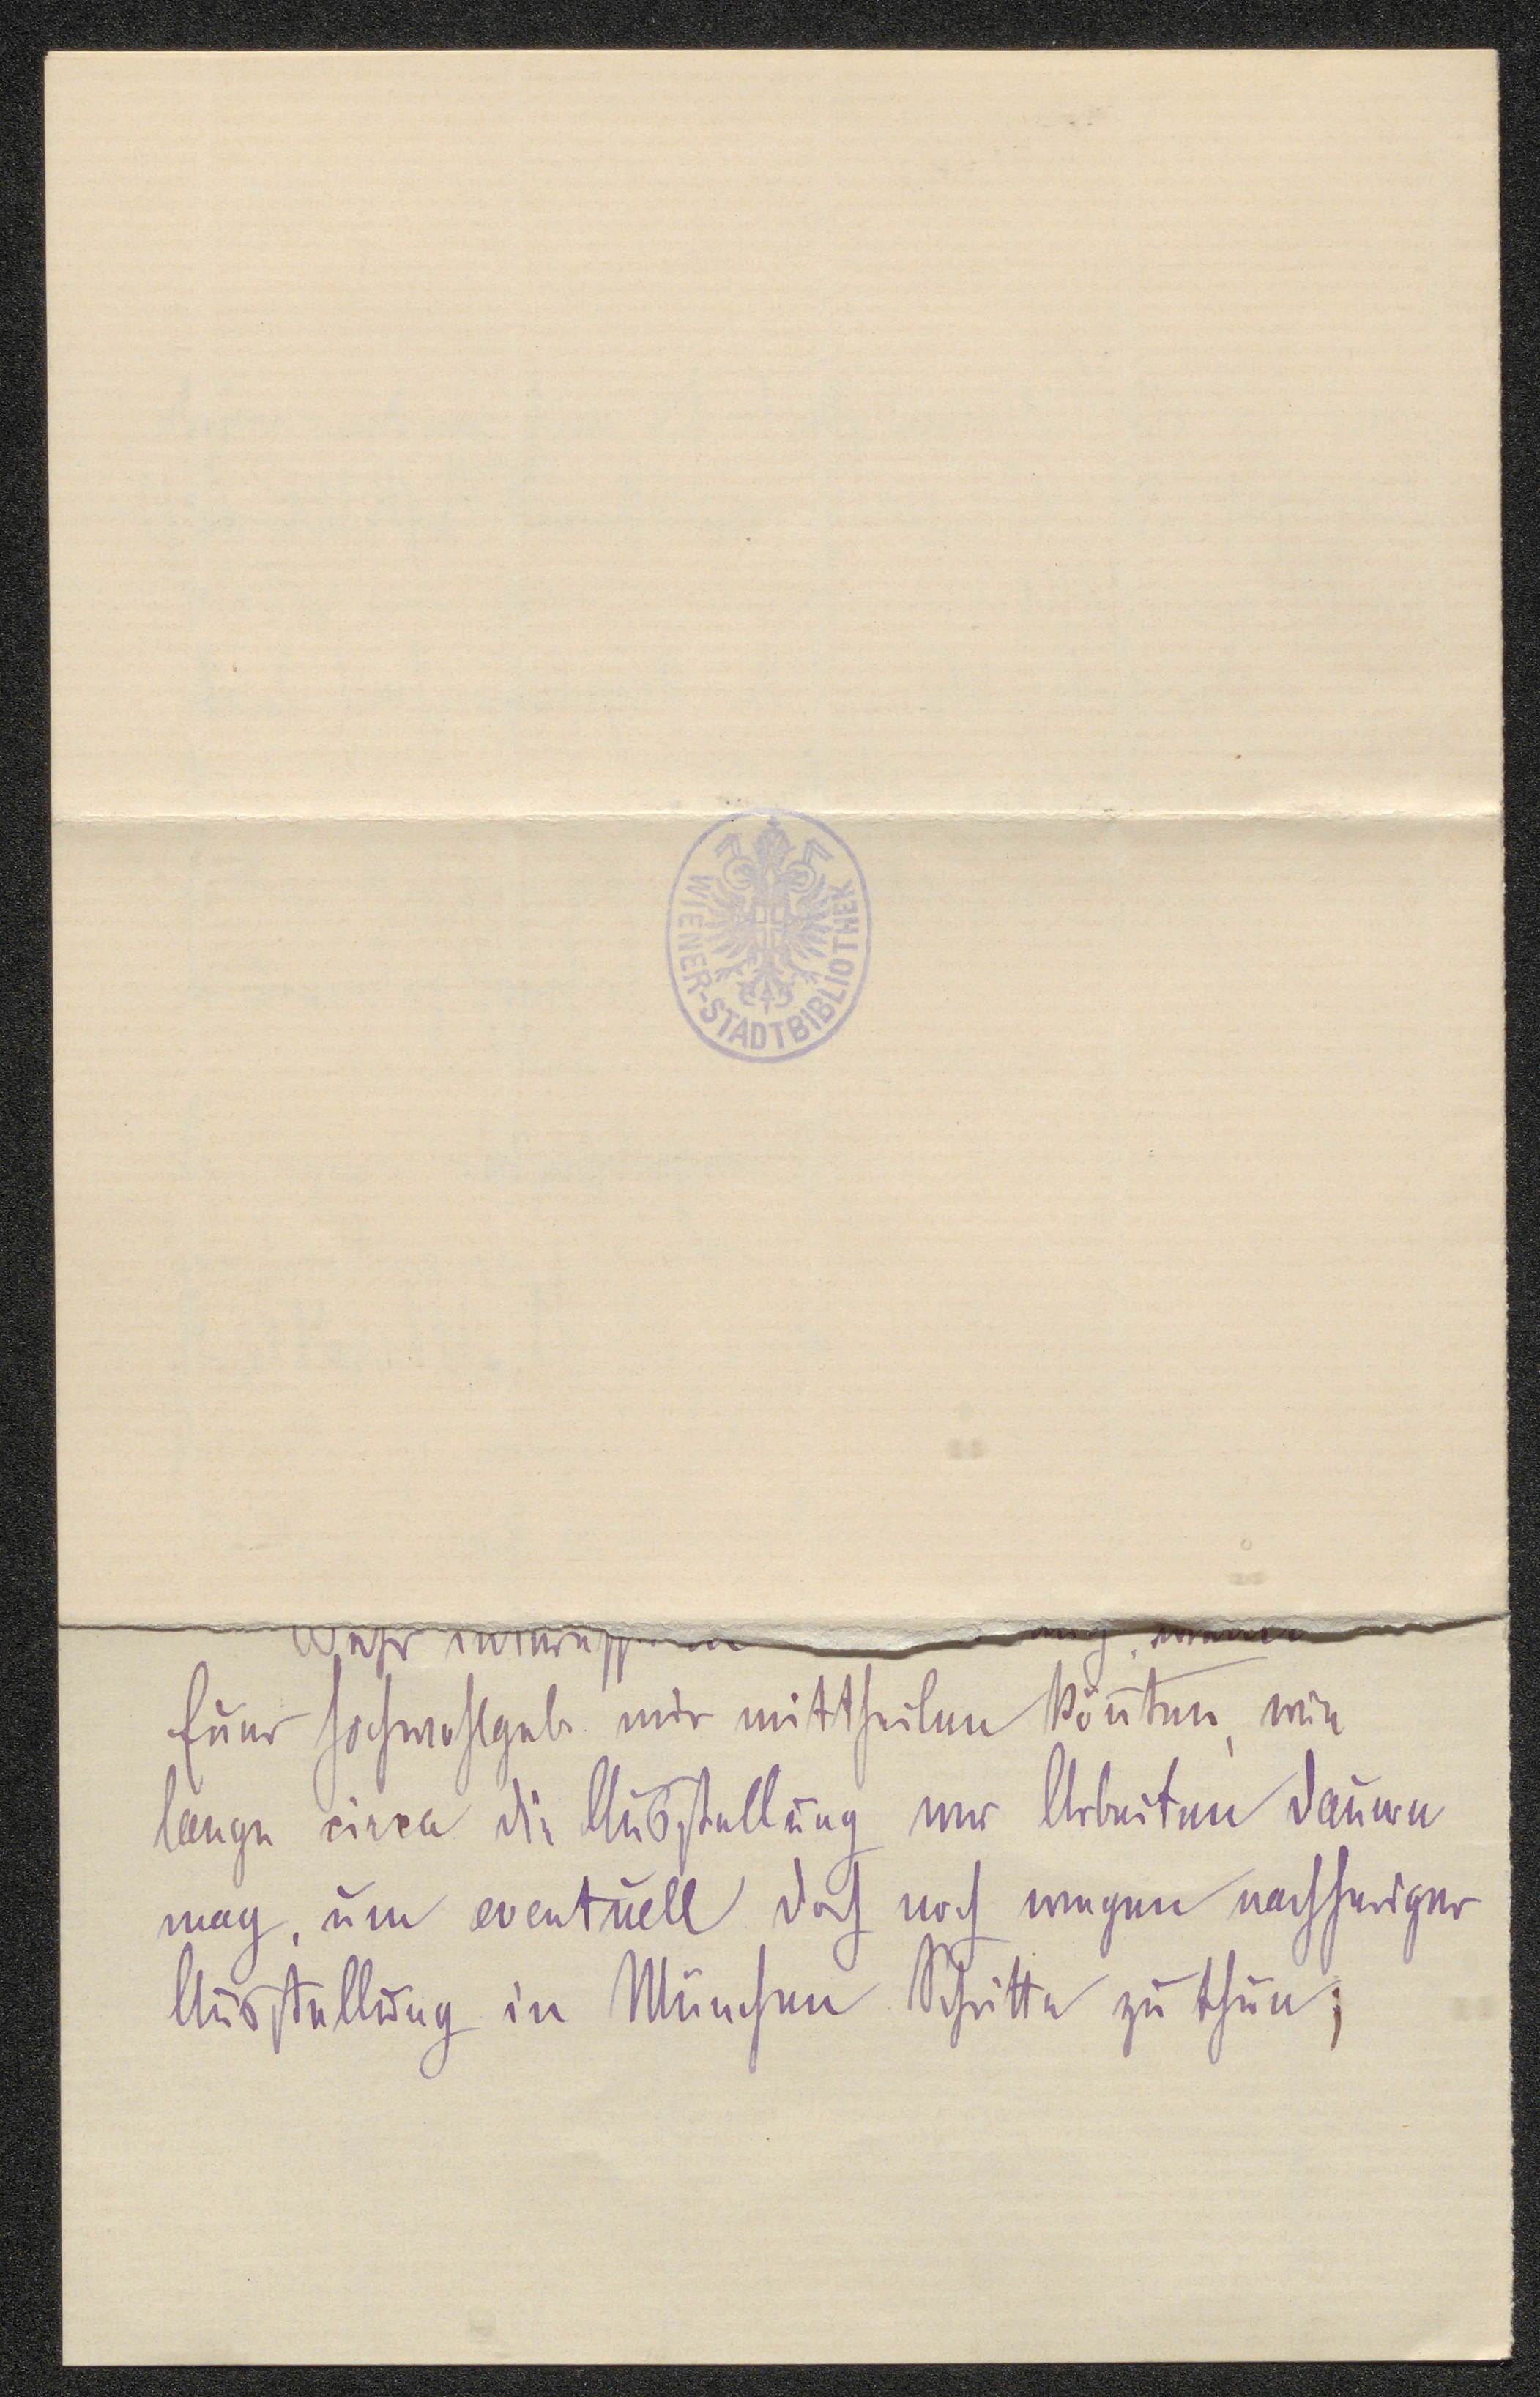 WIENER-STADTBIBLIOTHEK
Sehr
Euer Hochwohlgeb. mir mittheilen könnten, wie
lange circa die Ausstellung der Arbeiten dauern
mag, um eventuell doch noch wegen nachheriger
Ausstellung in München Schritte zu thun;